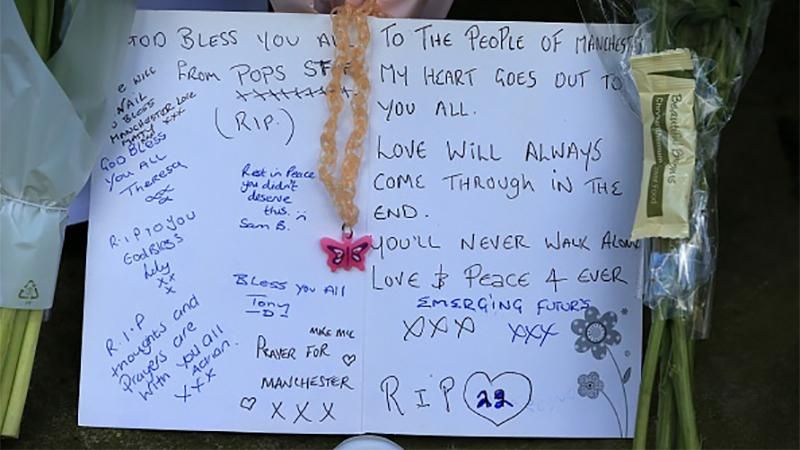 GOD BLESS YOU ALL
FROM POPS
(R.I.P.)
WILL
BLESS
MANCHESTER LOVE
XXX
GOD BLESS
YOU ALL
Theresa
Rest in Peace
you didn't
deserve
this.
Sam B.
R.I.P TO YOU
GOD BLESS
XX
BLESS YOU ALL
TONY
-D-
R.I.P
thoughts and
Prayers are
with you all
Adrian.
XXX
PRAYER FOR
MANCHESTER
XXX
TO THE PEOPLE OF MANCHESTER
MY HEART GOES OUT TO
YOU ALL.
LOVE WILL ALWAYS
COME THROUGH IN THE
END.
YOU'LL NEVER WALK ALONE
LOVE & PEACE 4 EVER
EMERGING FUTURS
XXX XXX
R I P 22
Beautiful Blooms